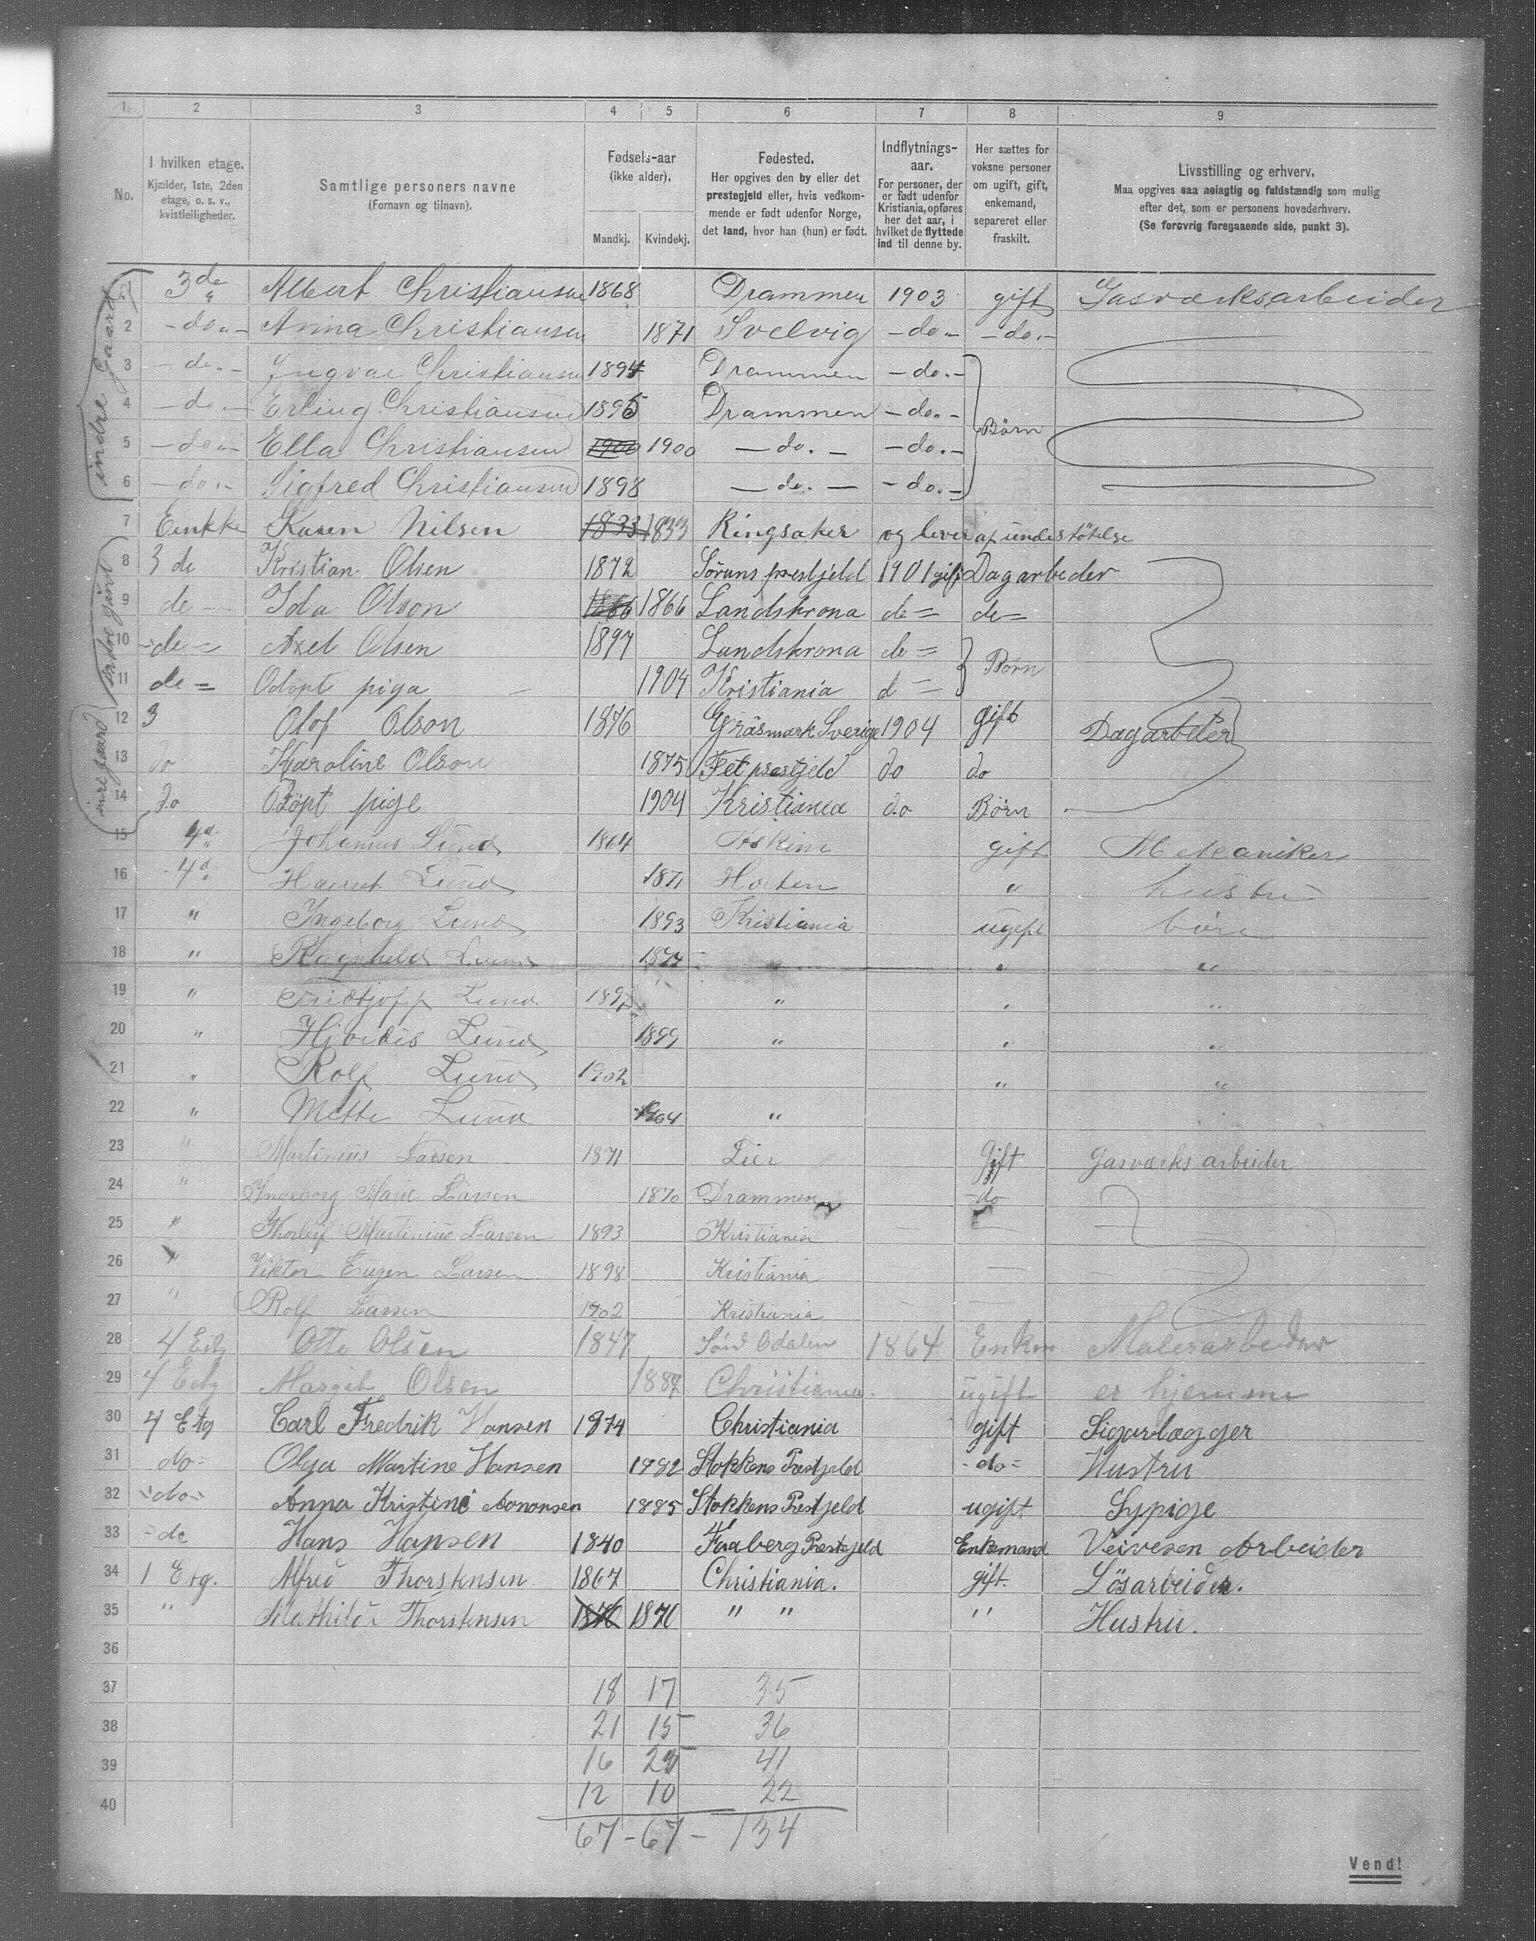 1 2 3 4 5 6 7 8 9
No.
I hvilken etage.
Kjælder, 1ste, 2den
etage, o. s. v.,
kvistleiligheder.
Samtlige personers navne
(Fornavn og tilnavn).
Fødsels-aar
(ikke alder).
Mandkj. Kvindekj.
Fødested.
Her opgives den by eller det
prestegjeld eller, hvis vedkom-
mende er født udenfor Norge,
det land, hvor han (hun) er født.
Indflytnings-
aar.
For personer, der
er født udenfor
Kristiania, opføres
her det aar, i
hvilket de flyttede
ind til denne by.
Her sættes for
voksne personer
om ugift, gift,
enkemand,
separeret eller
fraskilt.
Livsstilling og erhverv.
Maa opgives saa nøiagtig og fuldstændig som mulig
efter det, som er personens hovederhverv.
(Se forøvrig foregaaende side, punkt 3).
indre Gaard
1 3de " Albert Christiansen 1868 Drammen 1903 gift Gasværksarbeider
2 -do.- Anna Christiansen 1871 Svelvig -do.- -do.-
3 -do.- Yngvar Christiansen 1894 Drammen -do.-
4 -do.- Erling Christiansen 1895 Drammen -do.- Børn
5 -do.- Ella Christiansen 1900 1900 -do.- -do.-
6 -do.- Sigfred Christiansen 1898 -do.- -do.-
7 Enkke Karen Nilsen 1833 1833 Ringsaker og lever af understötelse
8 3 de Kristian Olsen 1872 Sörums prestjeld 1901 gift Dagarbeder
9 de - Ida Olson 1866 1866 Landskrona de = de =
10 de = Axel Olsen 1897 Landskrona de = Børn
11 de = Odöpt piga 1904 Kristiania d =
12 3 Olof Olson 1876 Gräsmark Sverige 1904 gift Dagarbeter
13 do Karoline Olson 1875 Fet prestjeld do do
14 do Odöpt pige 1904 Kristiania do Børn
15 4d. Johannes Lund 1864 Askim gift Mekaniker
16 4d. Lund 1871 Horten " hustru
17 " Ingeborg Lund 1893 Kristiania ugift
18 " Ragnhild Lund " " "
19 " Fridtjoff Lund " " "
20 " Hjordis Lund 1899 " " "
21 " Rolf Lund 1902 " "
22 " Mette Lund 1904 "
23 " Martinius Larsen 1871 Lier Gift Gasværks arbeider
24 " Ingeborg Marie Larsen 1870 Drammen -do
25 " Thorleif Martinius Larsen 1893 Kristiania
26 " Viktor Eugen Larsen 1898 Kristiania
27 " Rolf Larsen 1902 Kristiania
28 4 Etg Otto Olsen 1847 Sönd Odalen 1864 Enkem Malerarbeider
29 4 Etg Margit Olsen 1887 Christiania. ugift er hjemme
30 4 Etg Carl Fredrik Hansen 1874 Christiania gift Sigarlægger
31 do- Olga Martine Hansen 1882 Stokkens Prestjeld -do- Hustru
32 -do- Anna Kristine Aanonsen 1885 Stokkens Prestjeld ugift Sypige
33 -do Hans Hansen 1840 Faaberg Prestegjeld Enkemand Veivesen Arbeider
34 1 Etg. Alfred Thorstensen 1867 Christiania. gift. Lösarbeider.
35 " Mathilde Thorstensen 1870 1870 " " " Hustru.
36
37 18 17 35
38 21 15 36
39 16 25 41
40 12 10 22
67 - 67 - 134
Vend!